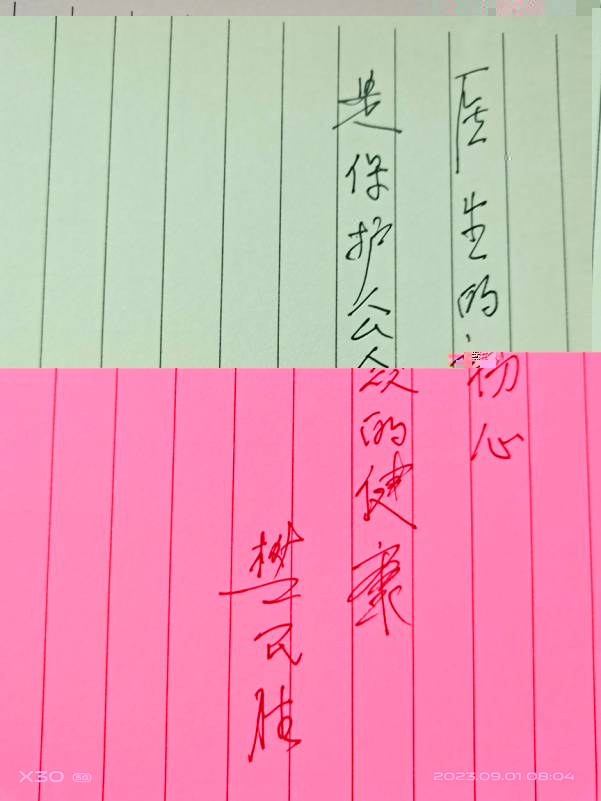 医生的初心
是保护公众的健康
樊民胜
X30 5G
2023.09.01 08:04